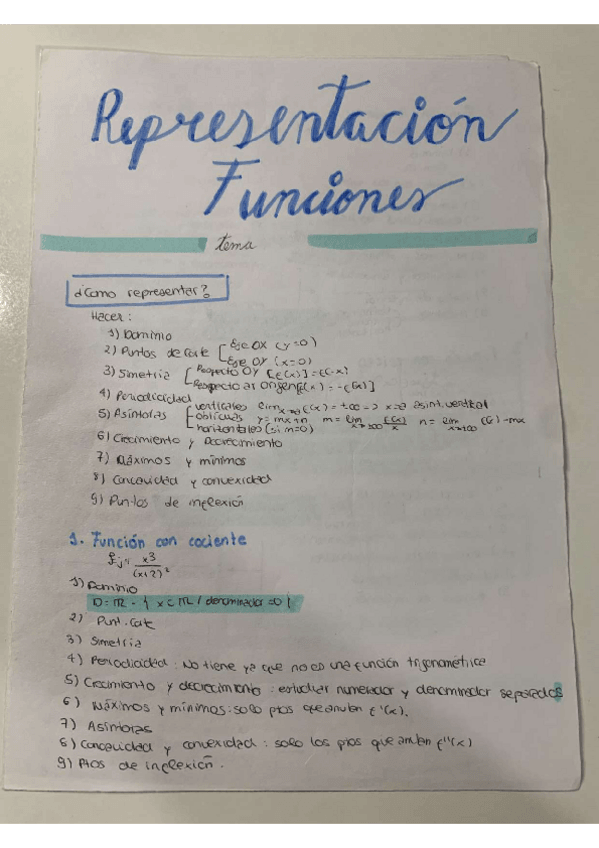 Representación
Funciones
tema
¿Como representar?
Hacer:
1) Dominio
2) Puntos de corte [Eje OX (y=0)
[Eje OY (x=0)
3) Simetria [Respecto OY [f(x)] = f(-x)
[Respecto al origen [f(x) = -f(x)]
4) Periodicidad
5) Asíntotas [verticales lim x→a f(x) = ±∞ → x=a asint. vertical
oblicuas y = mx+n m = lim x→±∞ f(x)/x n = lim x→±∞ f(x)-mx
horizontales (si m=0)
6) Crecimiento y Decrecimiento
7) Máximos y mínimos
8) Concavidad y convexidad
9) Puntos de inflexión
1. Función con cociente
x3/(x+2)²
1) Dominio
D = ℝ - { x ⊂ ℝ / denominador = 0 }
2) Punt. Corte
3) Simetria
4) Periodicidad: No tiene ya que no es una función trigonométrica
5) Crecimiento y decrecimiento: estudiar numerador y denominador separados
6) Máximos y mínimos: solo ptos que anulan f'(x).
7) Asíntotas
8) Concavidad y convexidad: solo los ptos que anulan f''(x)
9) Ptos de inflexión.